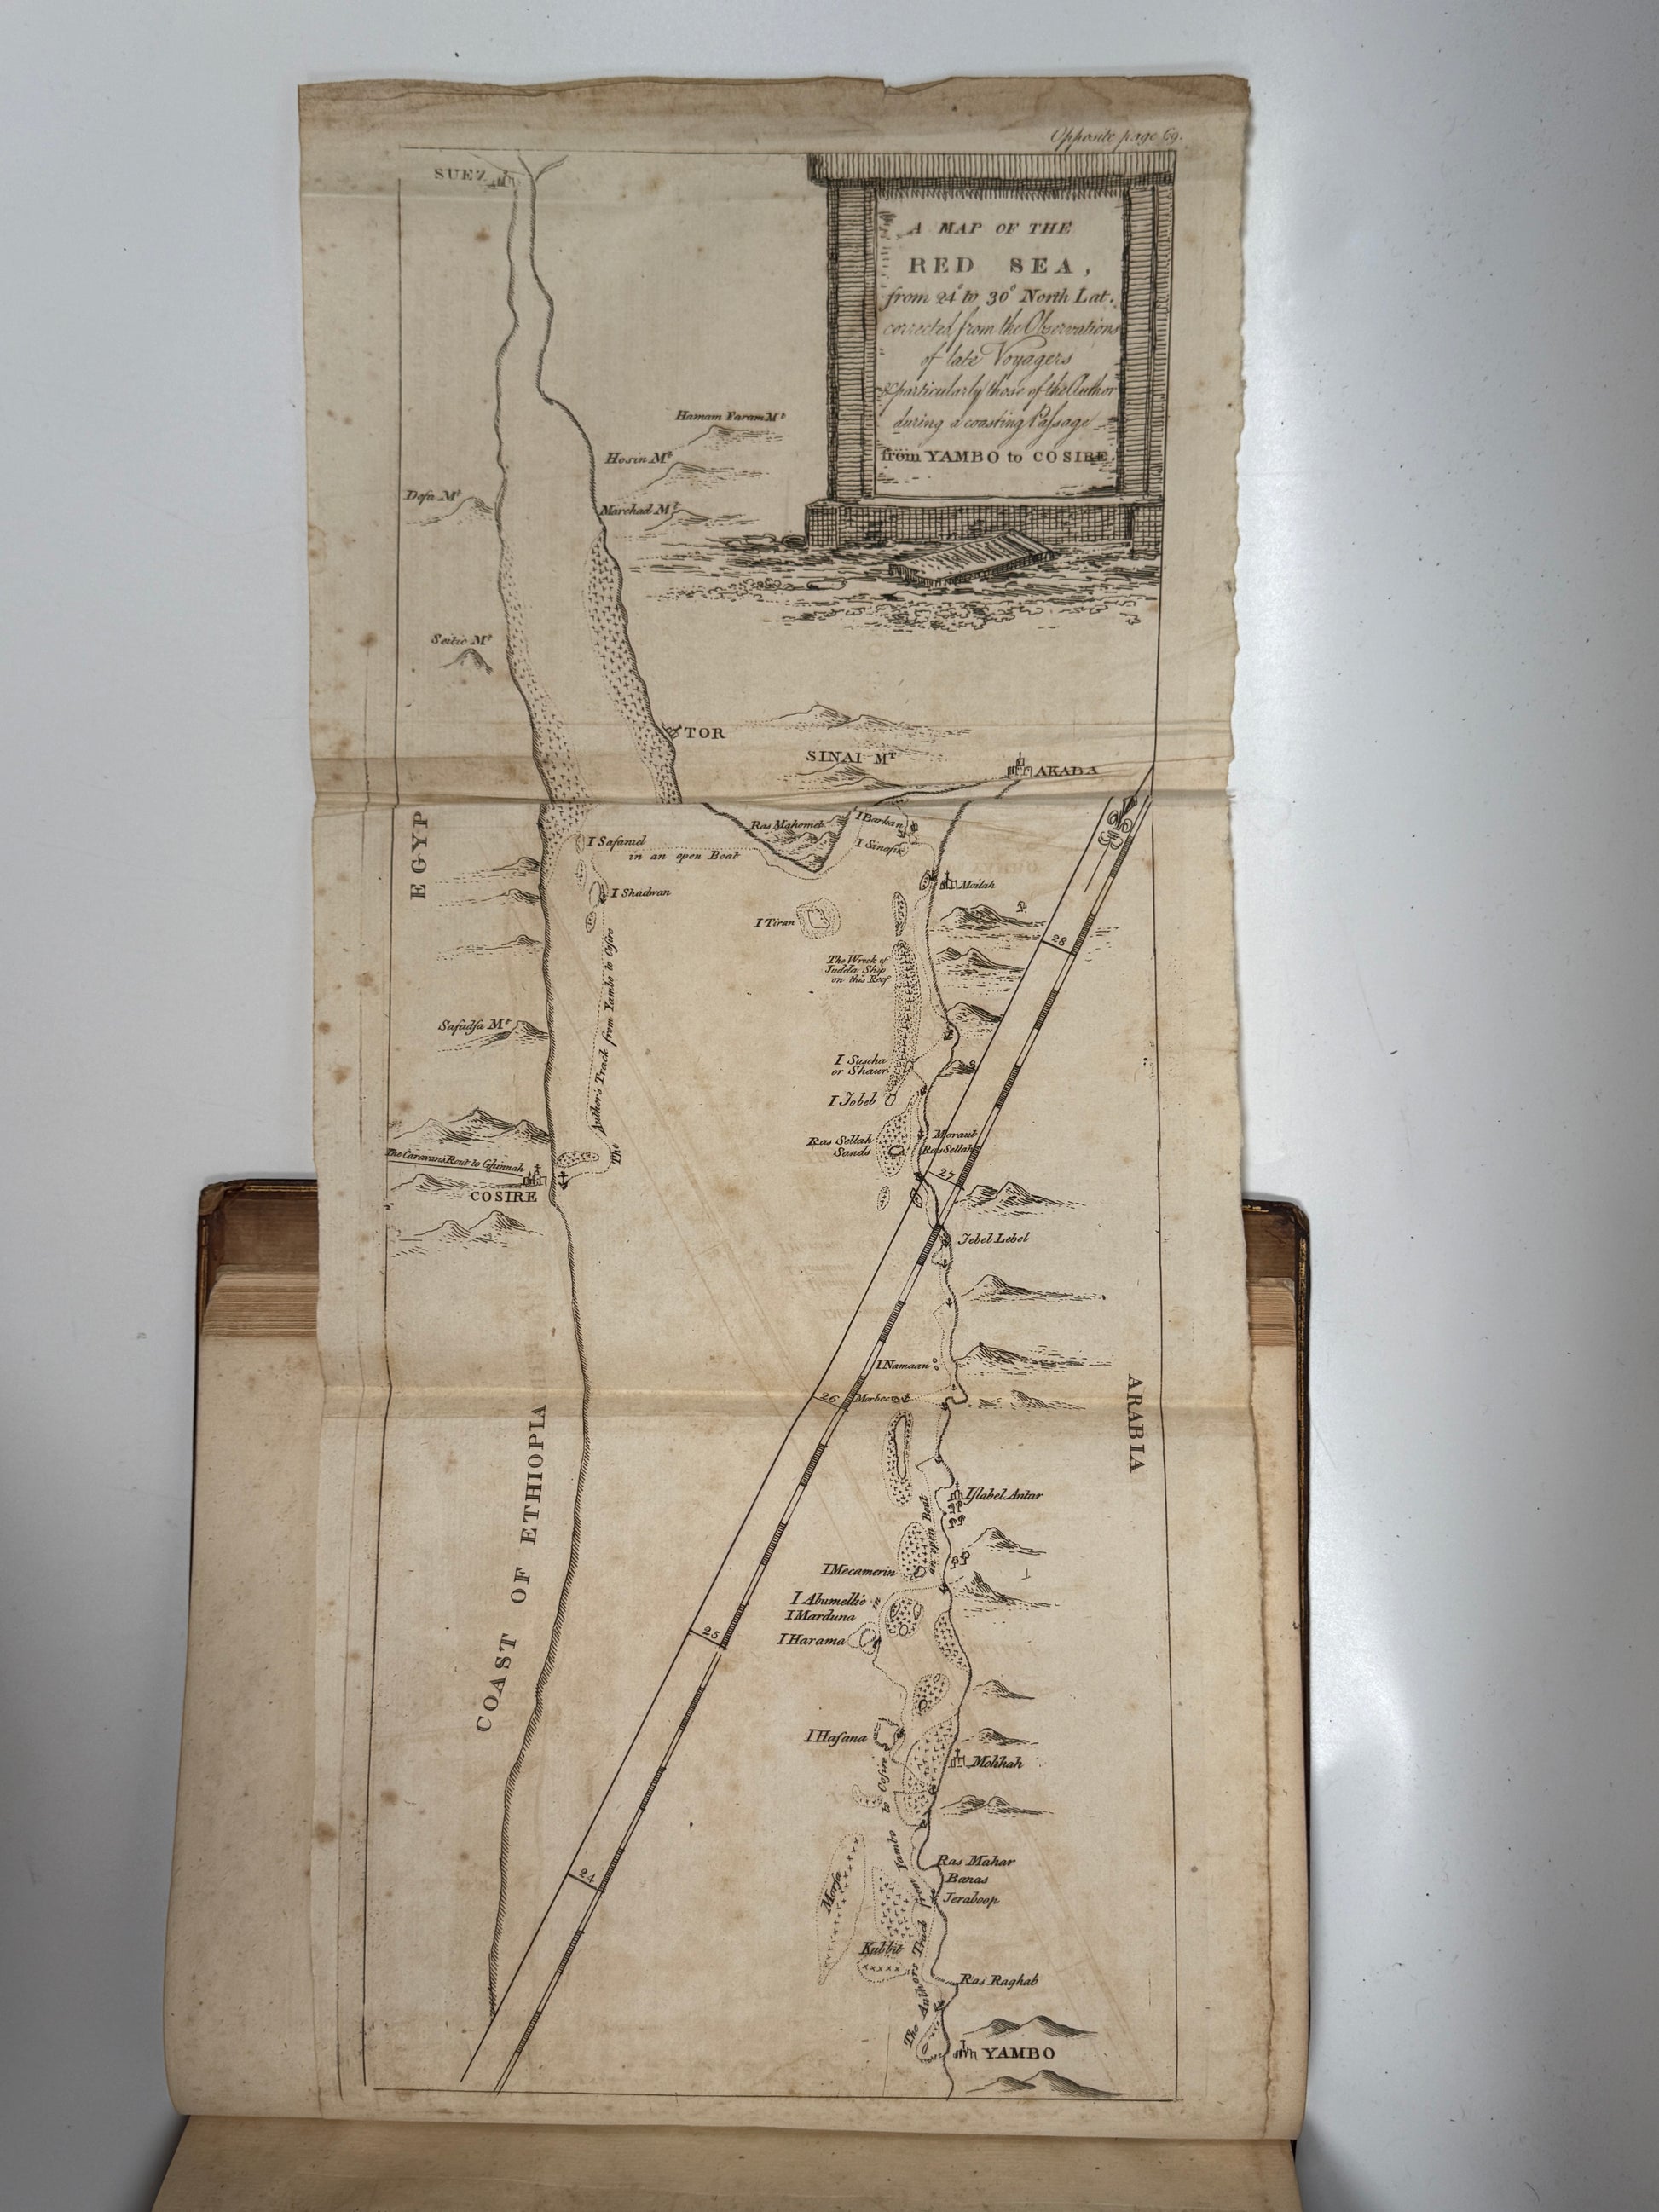 Opposite page 69.
SUEZ
A MAP OF THE
RED SEA,
from 24° to 30° North Lat.
corrected from the Observations
of late Voyagers
& particularly those of the Author
during a coasting Passage
from YAMBO to COSIRE.
Hamam Faram Mt
Hosin Mt
Marchad Mt
Defa Mt
Seitie Mt
TOR
SINAI Mt
AKABA
EGYP
Ras Mahomet
I Barkan
I Sinafir
I Safaniel
in an open Boat
I Shadwan
I Tiran
Moilah
28
The Wreck of
Judda Ship
on this Reef
The Author's Track from Yambo to Cosire
Safadsa Mt
I Suscha
or Shaur
I Jobeb
Ras Sellah
Sands
Moraut
Ras Sellah
27
The Caravans Rout to Ghinnah
COSIRE
Jebel Lebel
I Namaan
26
Morbec
ARABIA
COAST OF ETHIOPIA
Islabel Antar
in an open Boat
I Mecamerin
I Abumellio
I Marduna
I Harama
25
I Hasana
Mohhah
24
Ras Mahar
Banas
Jeraboop
Morsa
Kubbit
Ras Raghab
The Authors Tract from Yambo to Cosire
YAMBO